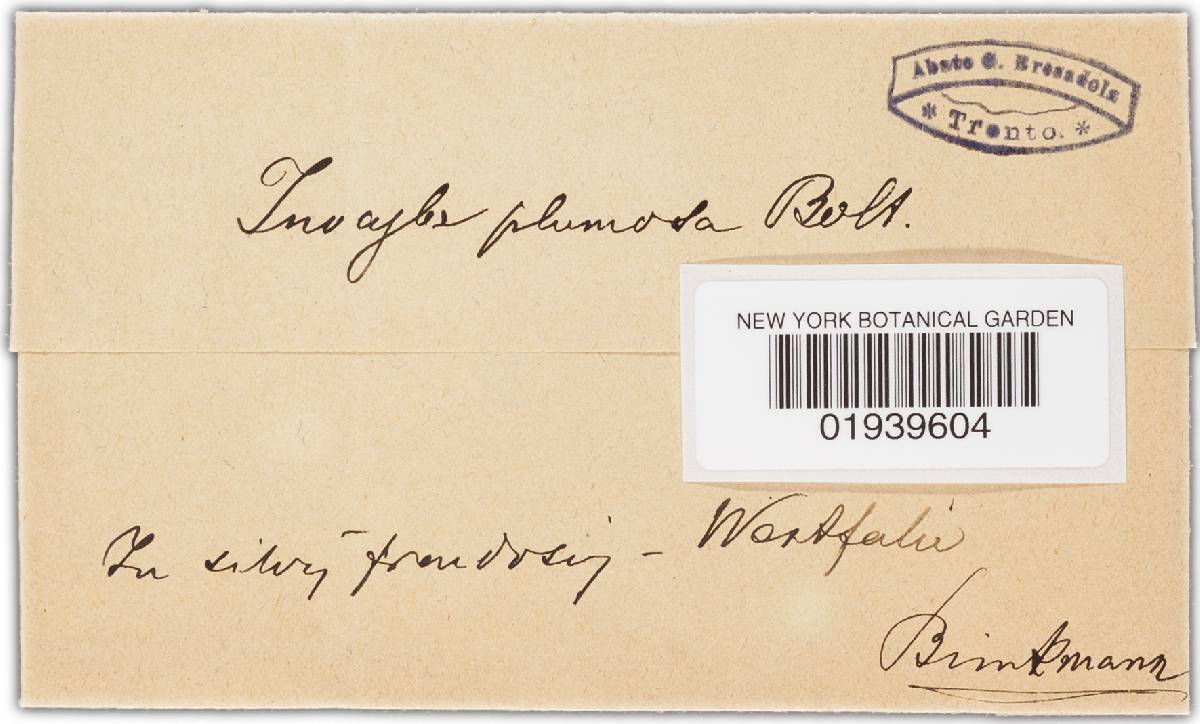 Abate G. Bresadola
* Trento. *
Inocybe plumosa Bolt.
NEW YORK BOTANICAL GARDEN
01939604
In silvis frondosis - Westfalia
Brinkmann